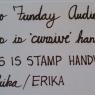 'Funday Audi
is 'cursive' han
IS IS STAMP HANDW
ika/ERIKA